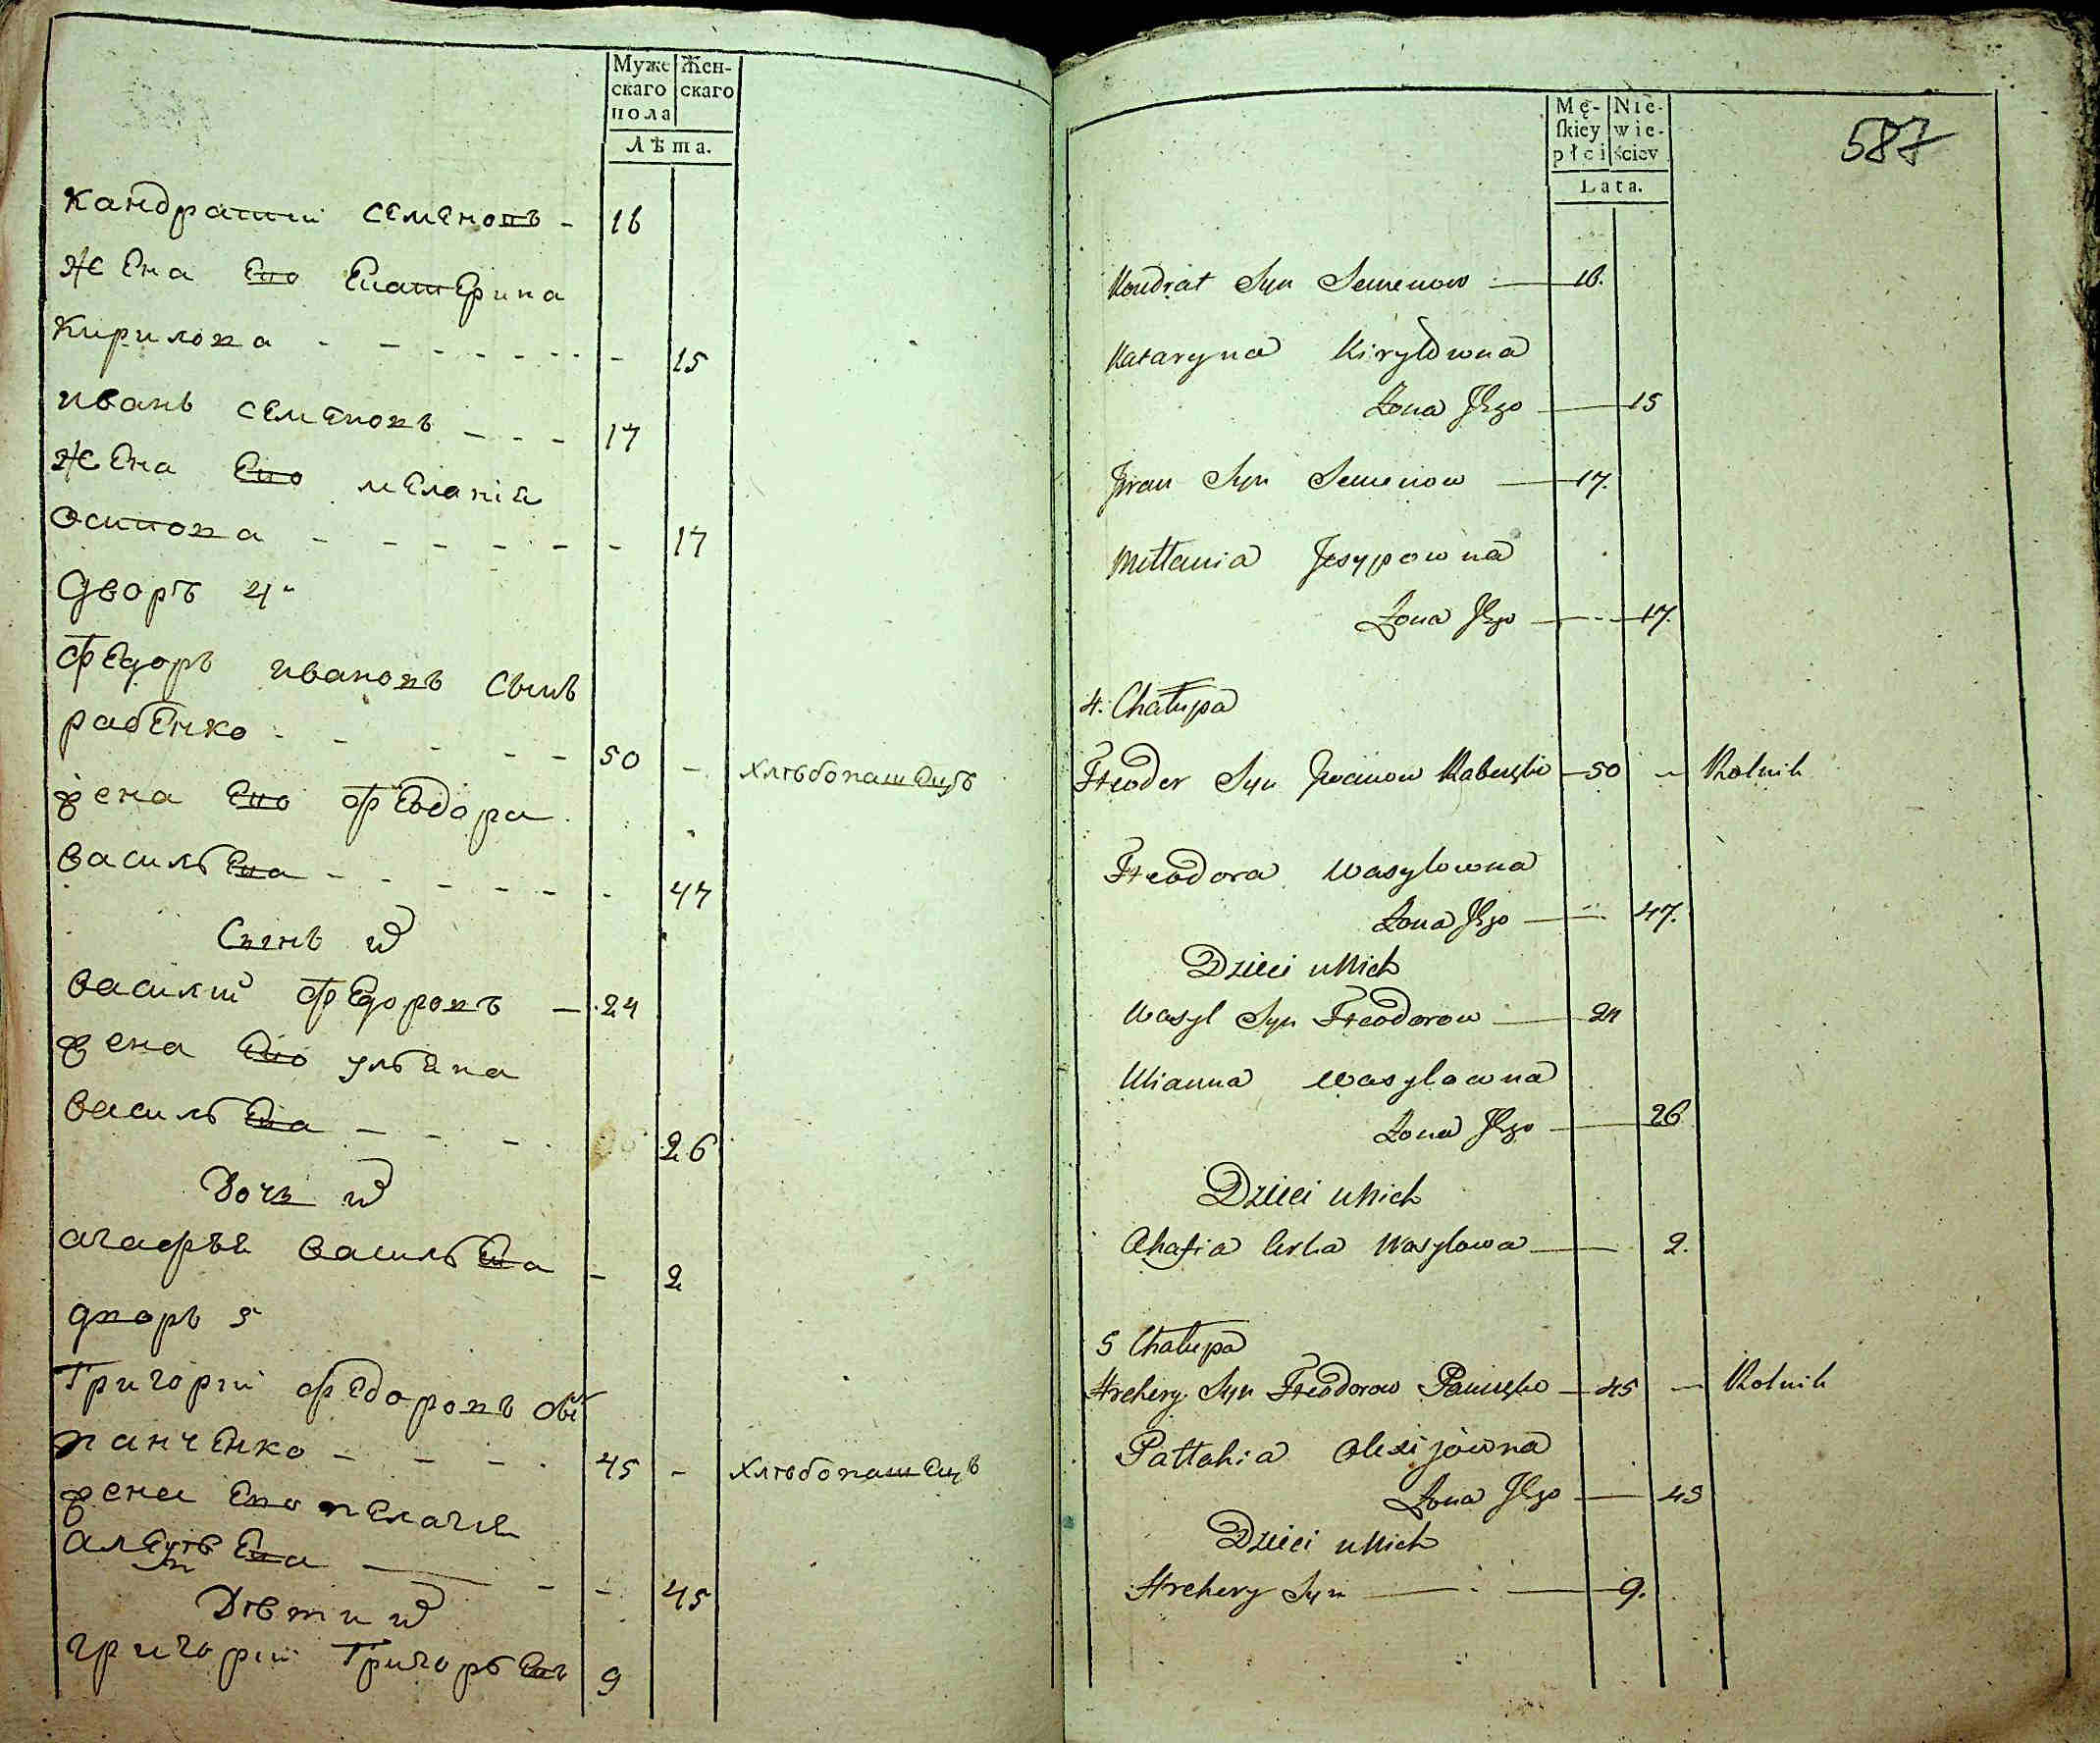 Муже
скаго
пола
Жен-
скаго
Лѣта.
кандратий семеновъ - 16
жена ево екатерина
кирилова - - - - - - - 15
иванъ семеновъ - - - 17
жена ево меланія
осипова - - - - - - 17
дворъ 4й
федоръ ивановъ сынъ
рабенко - - - - - 50 - хлѣбопашецъ
жена ево феодора
васильева - - - - - - 47
Сынъ их
василий федоровъ - 24
жена ево ульяна
васильева - - - 26
Дочь их
агафья васильева - 2
дворъ 5
Григорий федоровъ сын
панченко - - - - 45 - хлѣбопашецъ
жена ево пелагея
алексѣева - - - 45
Дѣти их
григорий Григорьевъ 9
587
Mę-
skiey
płci
Nie-
wie-
ściey
Lata.
Kondrat Syn Semenow - 16.
Kataryna Kiryłowna
Żona Jego - 15
Jwan Syn Semenow - 17.
Mełłania Jesypowna
Żona Jego - - - 17.
4. Chałupa
Fteodor Syn Jwanow Rabenko - 50 - Rolnik
Fteodora Wasylowna
Żona Jego - 47.
Dzieci u Nich
Wasyl Syn Fteodorow - 24
Ulianna Wasylowna
Żona Jego - 26
Dzieci u Nich
Ahafia Corka Wasylowa - 2.
5 Chałupa
Hrehery Syn Fteodorow Panczęko - 45 - Rolnik
Pałłahia Alexijowna
Żona Jego - 45
Dzieci u Nich
Hrehery Syn - - 9.